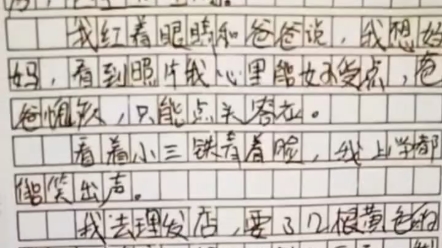 我红着眼睛和爸爸说，我想妈
妈，看到照片我心里能好受点，爸
爸愧疚，只能点头答应。
看着小三铁青着脸，我上学都
能笑出声。
我去理发店，要了几根黄色的